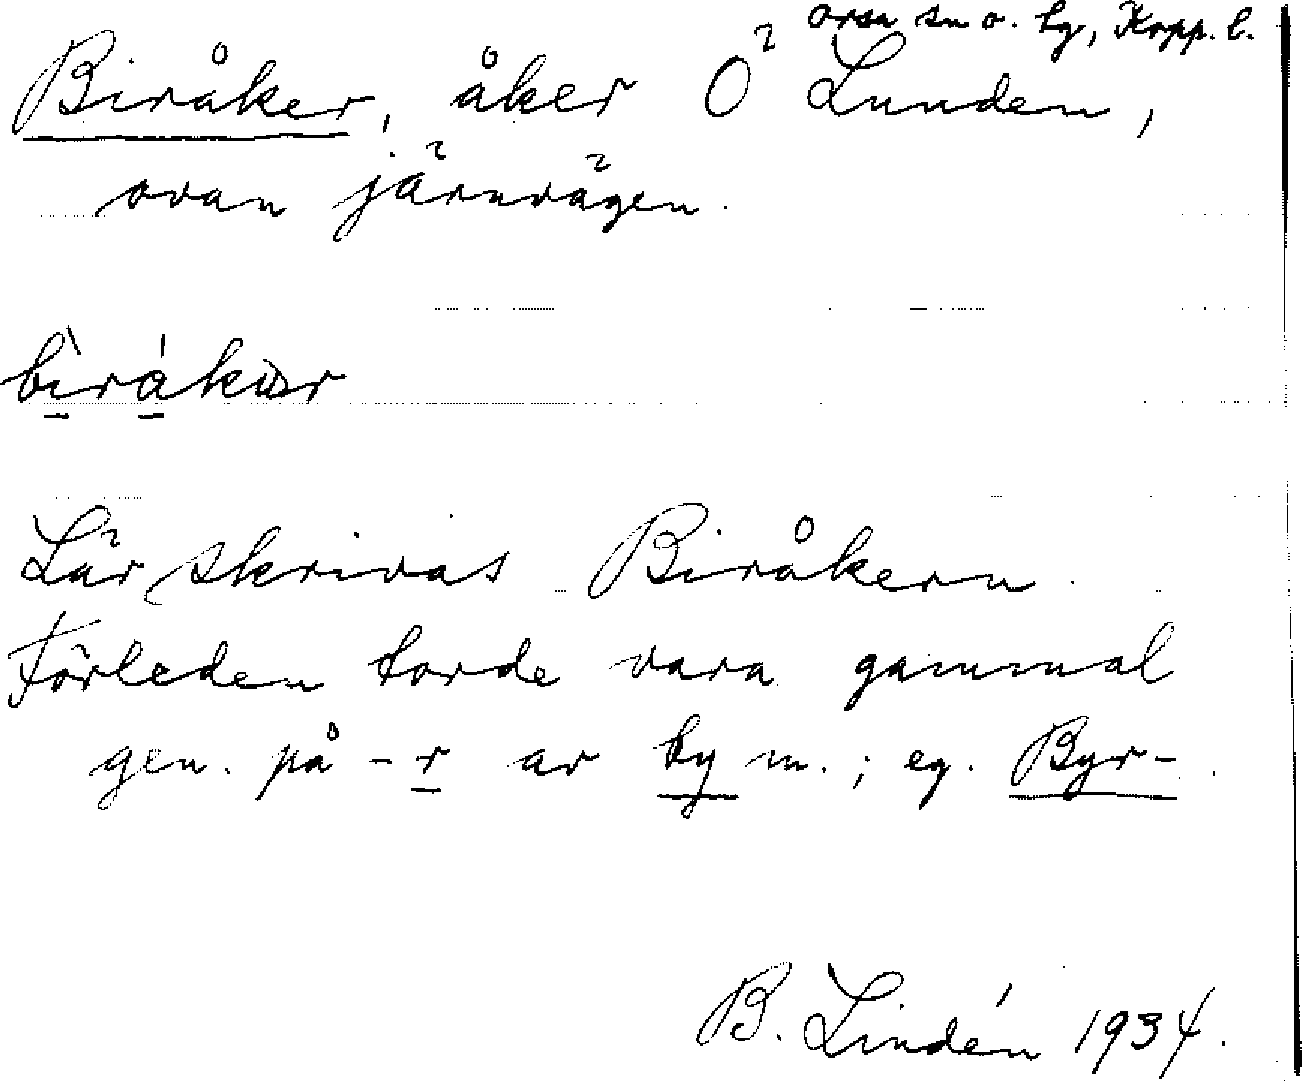 Orsa sn o. tg, Kopp. l.
Biråker, åker Ö Lunden,
ovan järnvägen.
biråkär
Lär skrivas Biråkern.
Förleden torde vara gammal
gen. på -r av by m.; eg. Byr-.
B. Lindén 1934.